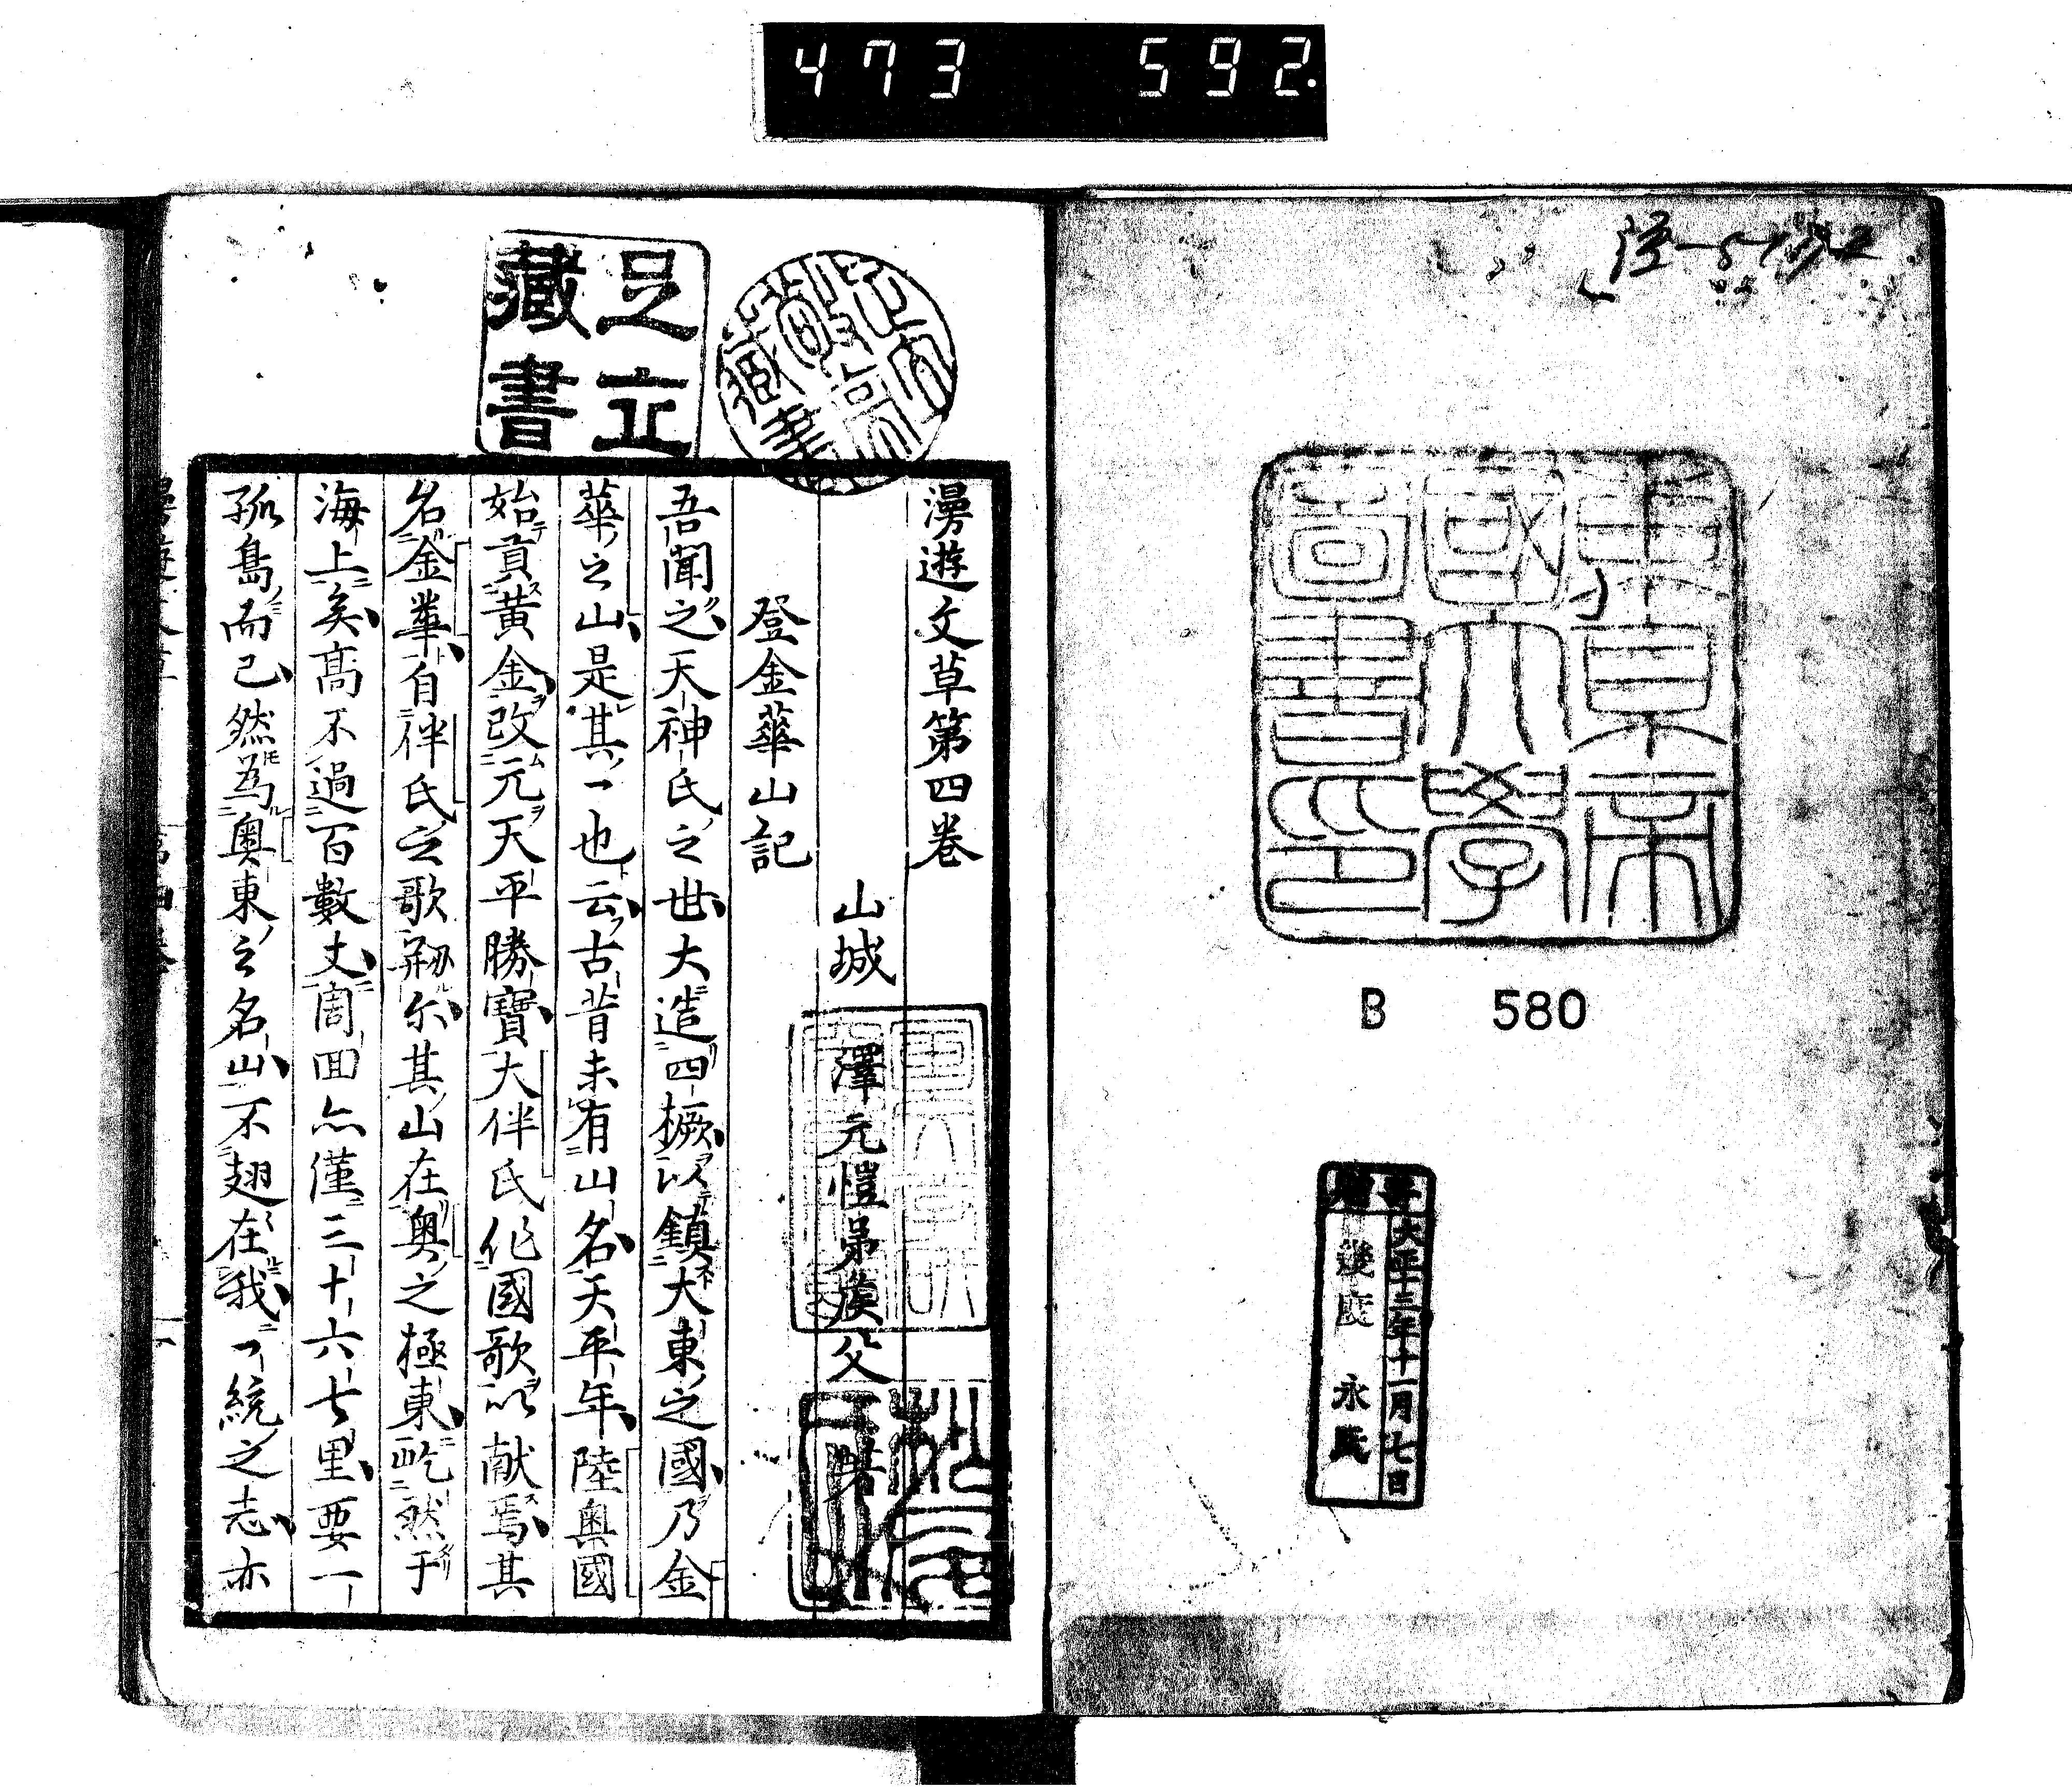 473 592
東京帝
國大學
圖書印
B 580
大正十三年十一月七日
永
足立
藏書
漫遊文草第四卷
山城 澤元愷弟矦父 著
登金華山記
吾聞之天神氏之世大造四橛以鎮大東之國乃金
華之山是其一也云古昔未有山名天平年陸奥國
始貢黄金改元天平勝寶大伴氏作國歌以献焉其
名金華自伴氏之歌剏尓其山在奥之極東屹然于
海上矣高不過百數丈周回亦僅三十六七里要一
孤島而已然為奥東之名山不翅在我一統之志亦